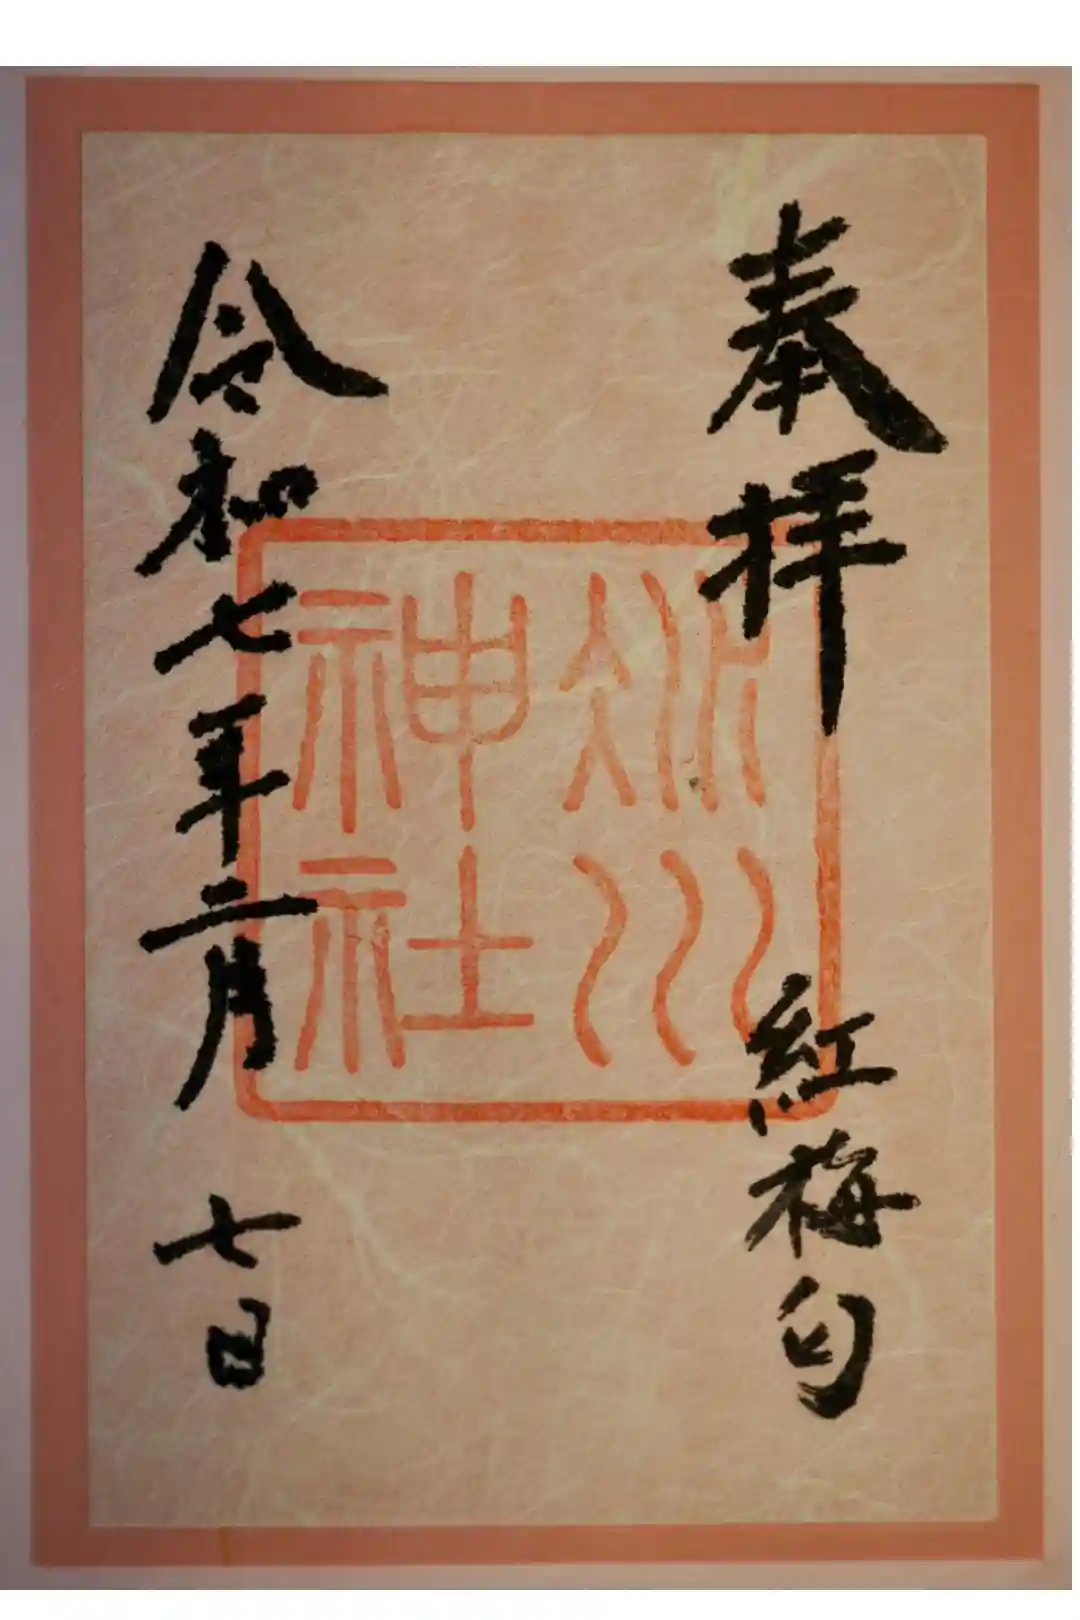 奉拝 紅梅匂
冰川
神社
令和七年二月 七日